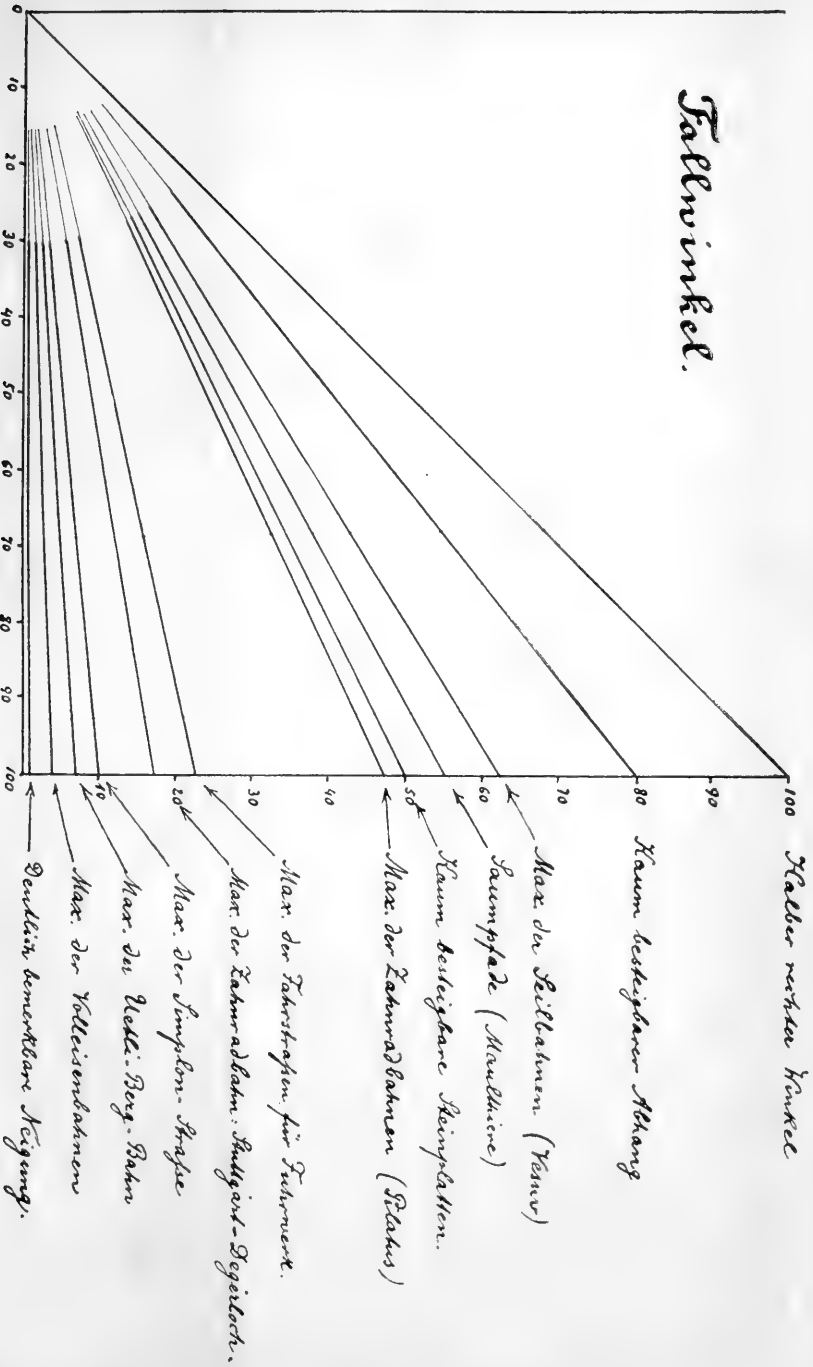 Fallwinkel.
0
10
20
30
40
50
60
70
80
90
100
100
90
80
70
60
50
40
30
20
10
Halber rechter Winkel
Kaum besteigbarer Abhang
Max. der Seilbahnen (Vesuv)
Saumpfade (Maulthiere)
Kaum besteigbare Steinplatten.
Max. der Zahnradbahnen (Pilatus)
Max. der Fahrstraßen für Fuhrwerk.
Max. der Zahnradbahn: Stuttgart-Degerloch.
Max. der Simplon-Straße
Max. der Uetli-Berg-Bahn
Max. der Volleisenbahnen
Deutlich bemerkbare Neigung.